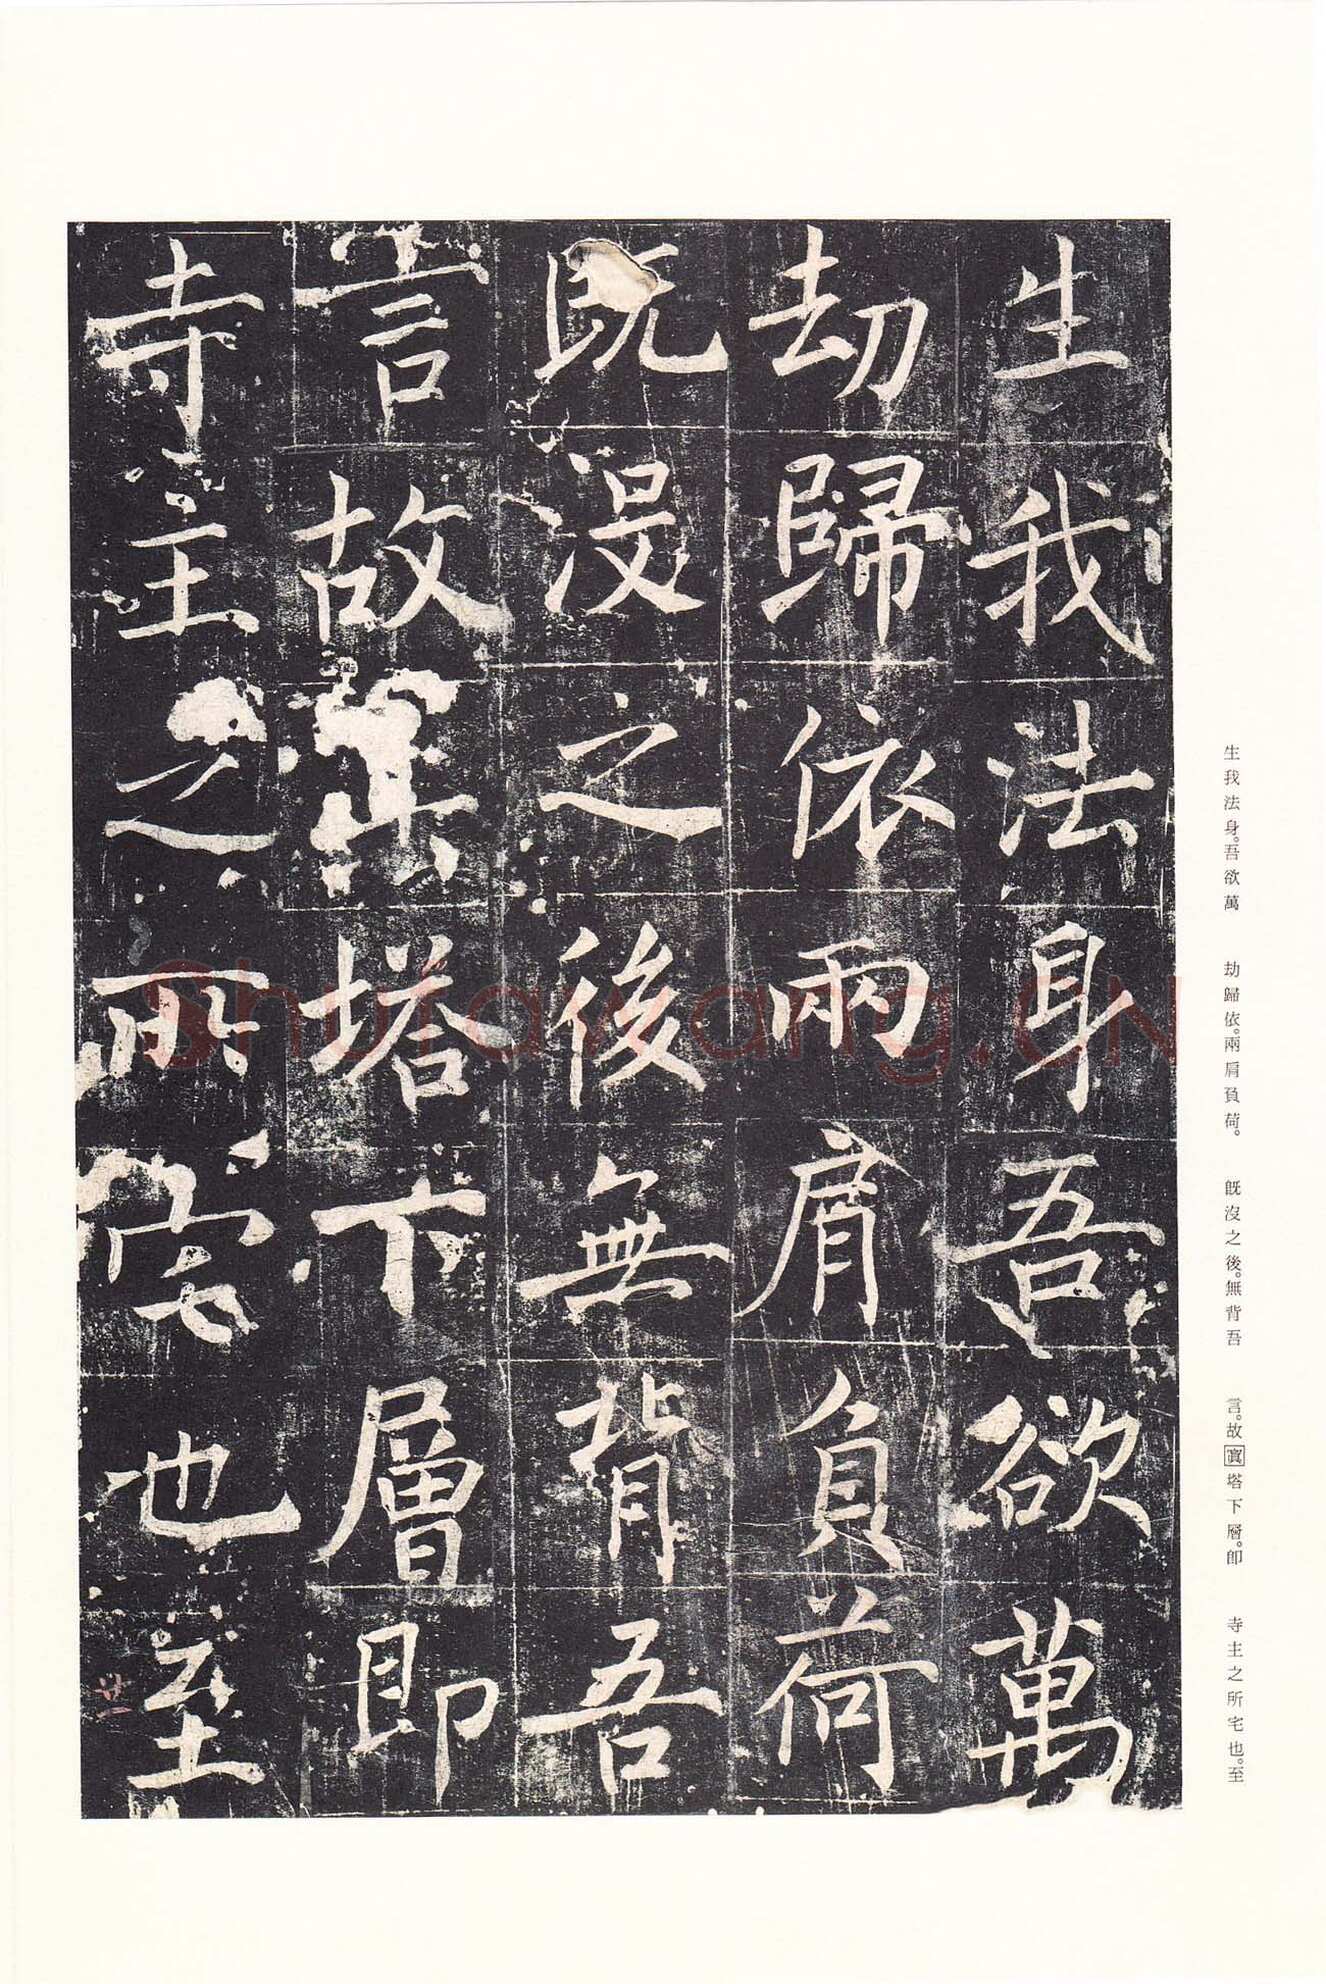 生我法身吾欲萬
劫歸依兩肩負荷
既没之後無背吾
言故寘塔下層即
寺主之所宅也至
生我法身。吾欲萬
劫歸依。兩肩負荷。
既沒之後。無背吾
言。故寘塔下層。卽
寺主之所宅也。至
Shufawang.CN
廿一